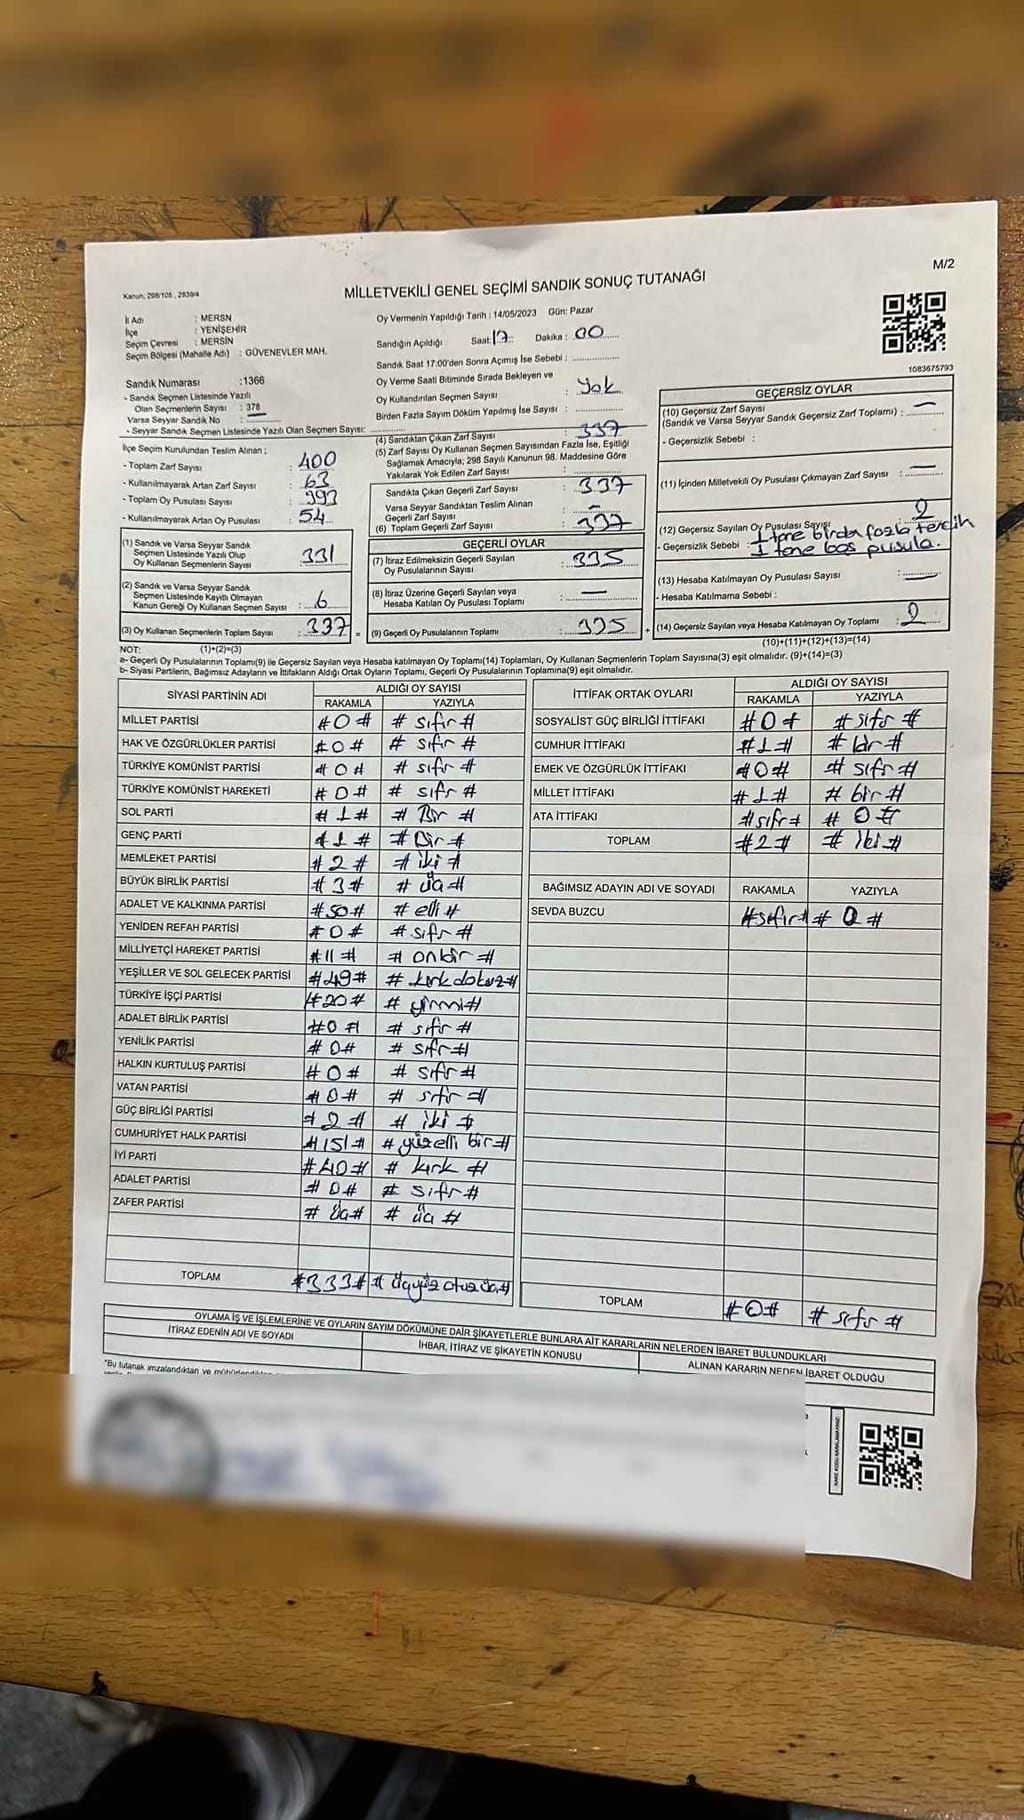 M/2
Kanun, 298/105 , 2839/4
MİLLETVEKİLİ GENEL SEÇİMİ SANDIK SONUÇ TUTANAĞI
1083675793
İl Adı : MERSN
İlçe : YENİŞEHİR
Seçim Çevresi : MERSİN
Seçim Bölgesi (Mahalle Adı) : GÜVENEVLER MAH.
Sandık Numarası :1366
- Sandık Seçmen Listesinde Yazılı
Olan Seçmenlerin Sayısı : 378
Varsa Seyyar Sandık No
- Seyyar Sandık Seçmen Listesinde Yazılı Olan Seçmen Sayısı:
İlçe Seçim Kurulundan Teslim Alınan ;
- Toplam Zarf Sayısı : 400
- Kullanılmayarak Artan Zarf Sayısı : 63
- Toplam Oy Pusulası Sayısı :
- Kullanılmayarak Artan Oy Pusulası : 54
(1) Sandık ve Varsa Seyyar Sandık
Seçmen Listesinde Yazılı Olup
Oy Kullanan Seçmenlerin Sayısı : 331
(2) Sandık ve Varsa Seyyar Sandık
Seçmen Listesinde Kayıtlı Olmayan
Kanun Gereği Oy Kullanan Seçmen Sayısı : 6
(3) Oy Kullanan Seçmenlerin Toplam Sayısı : 337 =
Oy Vermenin Yapıldığı Tarih : 14/05/2023 Gün: Pazar
Sandığın Açıldığı Saat: 17 Dakika : 00
Sandık Saat 17:00'den Sonra Açımış İse Sebebi :
Oy Verme Saati Bitiminde Sırada Bekleyen ve
Oy Kullandırılan Seçmen Sayısı : Yok
Birden Fazla Sayım Döküm Yapılmış İse Sayısı :
(4) Sandıktan Çıkan Zarf Sayısı : 337
(5) Zarf Sayısı Oy Kullanan Seçmen Sayısından Fazla İse, Eşitliği
Sağlamak Amacıyla; 298 Sayılı Kanunun 98. Maddesine Göre
Yakılarak Yok Edilen Zarf Sayısı :
Sandıkta Çıkan Geçerli Zarf Sayısı : 337
Varsa Seyyar Sandıktan Teslim Alınan
Geçerli Zarf Sayısı : -
(6) Toplam Geçerli Zarf Sayısı : 337
GEÇERLİ OYLAR
(7) İtiraz Edilmeksizin Geçerli Sayılan
Oy Pusulalarının Sayısı : 335
(8) İtiraz Üzerine Geçerli Sayılan veya
Hesaba Katılan Oy Pusulası Toplamı : —
(9) Geçerli Oy Pusulalarının Toplamı : 335 +
GEÇERSİZ OYLAR
(10) Geçersiz Zarf Sayısı
(Sandık ve Varsa Seyyar Sandık Geçersiz Zarf Toplamı) : —
- Geçersizlik Sebebi :
(11) İçinden Milletvekili Oy Pusulası Çıkmayan Zarf Sayısı : —
(12) Geçersiz Sayılan Oy Pusulası Sayısı : 2
- Geçersizlik Sebebi : 1 tane birden fazla tercih
1 tane boş pusula.
(13) Hesaba Katılmayan Oy Pusulası Sayısı : —
- Hesaba Katılmama Sebebi :
(14) Geçersiz Sayılan veya Hesaba Katılmayan Oy Toplamı : 2
(10)+(11)+(12)+(13)=(14)
NOT: (1)+(2)=(3)
a- Geçerli Oy Pusulalarının Toplamı(9) ile Geçersiz Sayılan veya Hesaba katılmayan Oy Toplamı(14) Toplamları, Oy Kullanan Seçmenlerin Toplam Sayısına(3) eşit olmalıdır. (9)+(14)=(3)
b- Siyasi Partilerin, Bağımsız Adayların ve İttifakların Aldığı Ortak Oyların Toplamı, Geçerli Oy Pusulalarının Toplamına(9) eşit olmalıdır.
SİYASİ PARTİNİN ADI ALDIĞI OY SAYISI
RAKAMLA YAZIYLA
MİLLET PARTİSİ #0# # sıfır #
HAK VE ÖZGÜRLÜKLER PARTİSİ #0# # sıfır #
TÜRKİYE KOMÜNİST PARTİSİ #0# # sıfır #
TÜRKİYE KOMÜNİST HAREKETİ #0# # sıfır #
SOL PARTİ #1# # Bir #
GENÇ PARTİ #1# # Bir #
MEMLEKET PARTİSİ #2# # iki #
BÜYÜK BİRLİK PARTİSİ #3# # üç #
ADALET VE KALKINMA PARTİSİ #50# # elli #
YENİDEN REFAH PARTİSİ #0# # sıfır #
MİLLİYETÇİ HAREKET PARTİSİ #11# # onbir #
YEŞİLLER VE SOL GELECEK PARTİSİ #49# # kırk dokuz #
TÜRKİYE İŞÇİ PARTİSİ #20# # yirmi #
ADALET BİRLİK PARTİSİ #0# # sıfır #
YENİLİK PARTİSİ #0# # sıfır #
HALKIN KURTULUŞ PARTİSİ #0# # sıfır #
VATAN PARTİSİ #0# # sıfır #
GÜÇ BİRLİĞİ PARTİSİ #2# # iki #
CUMHURİYET HALK PARTİSİ #151# # yüzelli bir #
İYİ PARTİ #40# # kırk #
ADALET PARTİSİ #0# # sıfır #
ZAFER PARTİSİ # üç # # üç #
TOPLAM #333# # üçyüz otuz üç #
İTTİFAK ORTAK OYLARI ALDIĞI OY SAYISI
RAKAMLA YAZIYLA
SOSYALİST GÜÇ BİRLİĞİ İTTİFAKI #0# # sıfır #
CUMHUR İTTİFAKI #1# # bir #
EMEK VE ÖZGÜRLÜK İTTİFAKI #0# # sıfır #
MİLLET İTTİFAKI #1# # bir #
ATA İTTİFAKI # sıfır # # 0 #
TOPLAM #2# # iki #
BAĞIMSIZ ADAYIN ADI VE SOYADI RAKAMLA YAZIYLA
SEVDA BUZCU # sıfır # # 0 #
TOPLAM #0# # sıfır #
OYLAMA İŞ VE İŞLEMLERİNE VE OYLARIN SAYIM DÖKÜMÜNE DAİR ŞİKAYETLERLE BUNLARA AİT KARARLARIN NELERDEN İBARET BULUNDUKLARI
İTİRAZ EDENİN ADI VE SOYADI İHBAR, İTİRAZ VE ŞİKAYETİN KONUSU ALINAN KARARIN NEDEN İBARET OLDUĞU
"Bu tutanak imzalandıktan ve